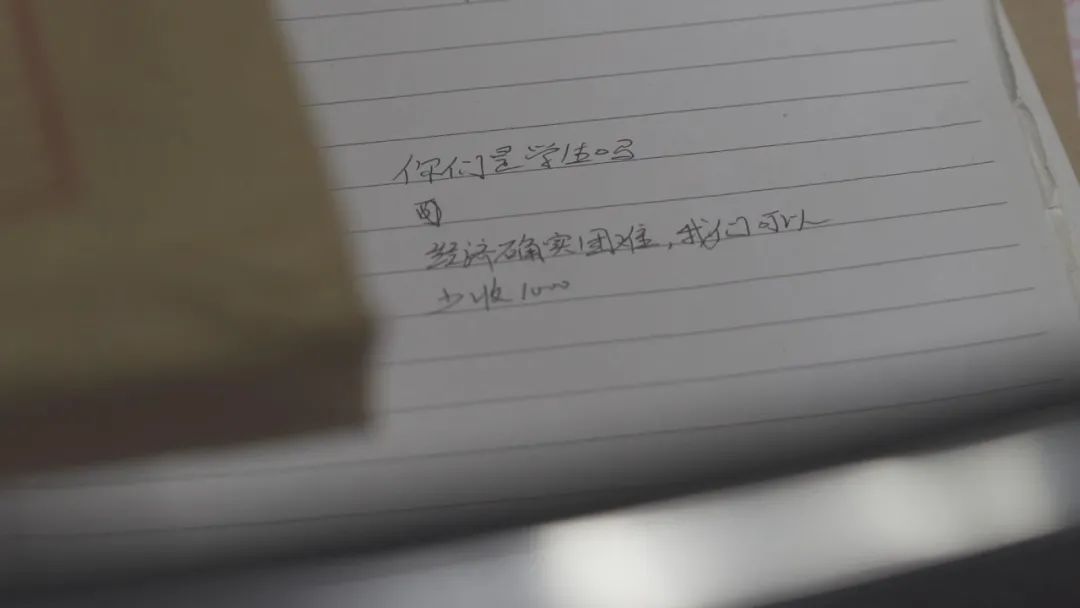 你们是学生吗
经济确实困难,我们可以
少收1000